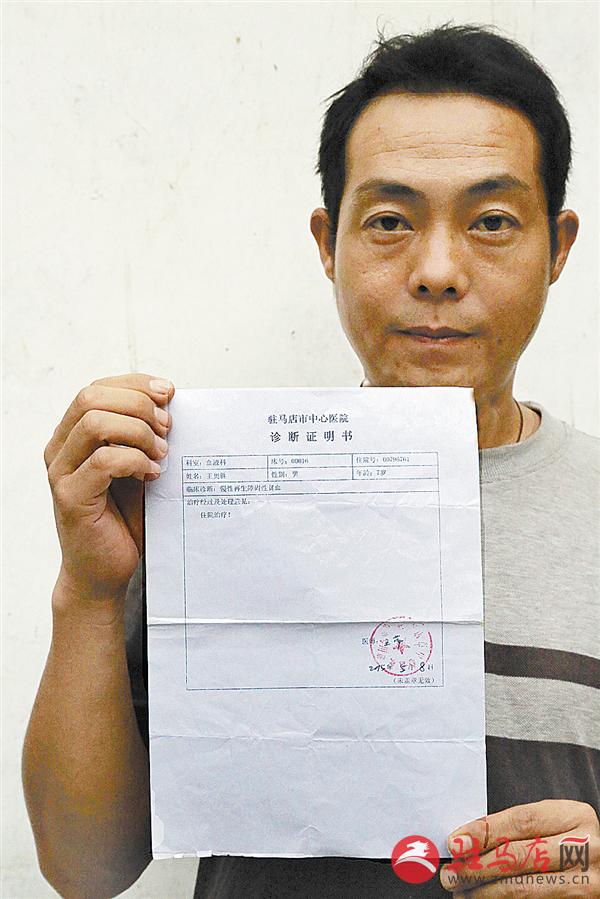 驻马店市中心医院
诊断证明书
科室：血液科 床号：00016 住院号：00296761
姓名：王奥 性别：男 年龄：7岁
临床诊断：慢性再生障碍性贫血
治疗经过及处理意见：
住院治疗！
医师：
2015年5月8日
（未盖章无效）
驻马店网
www.zmdnews.cn